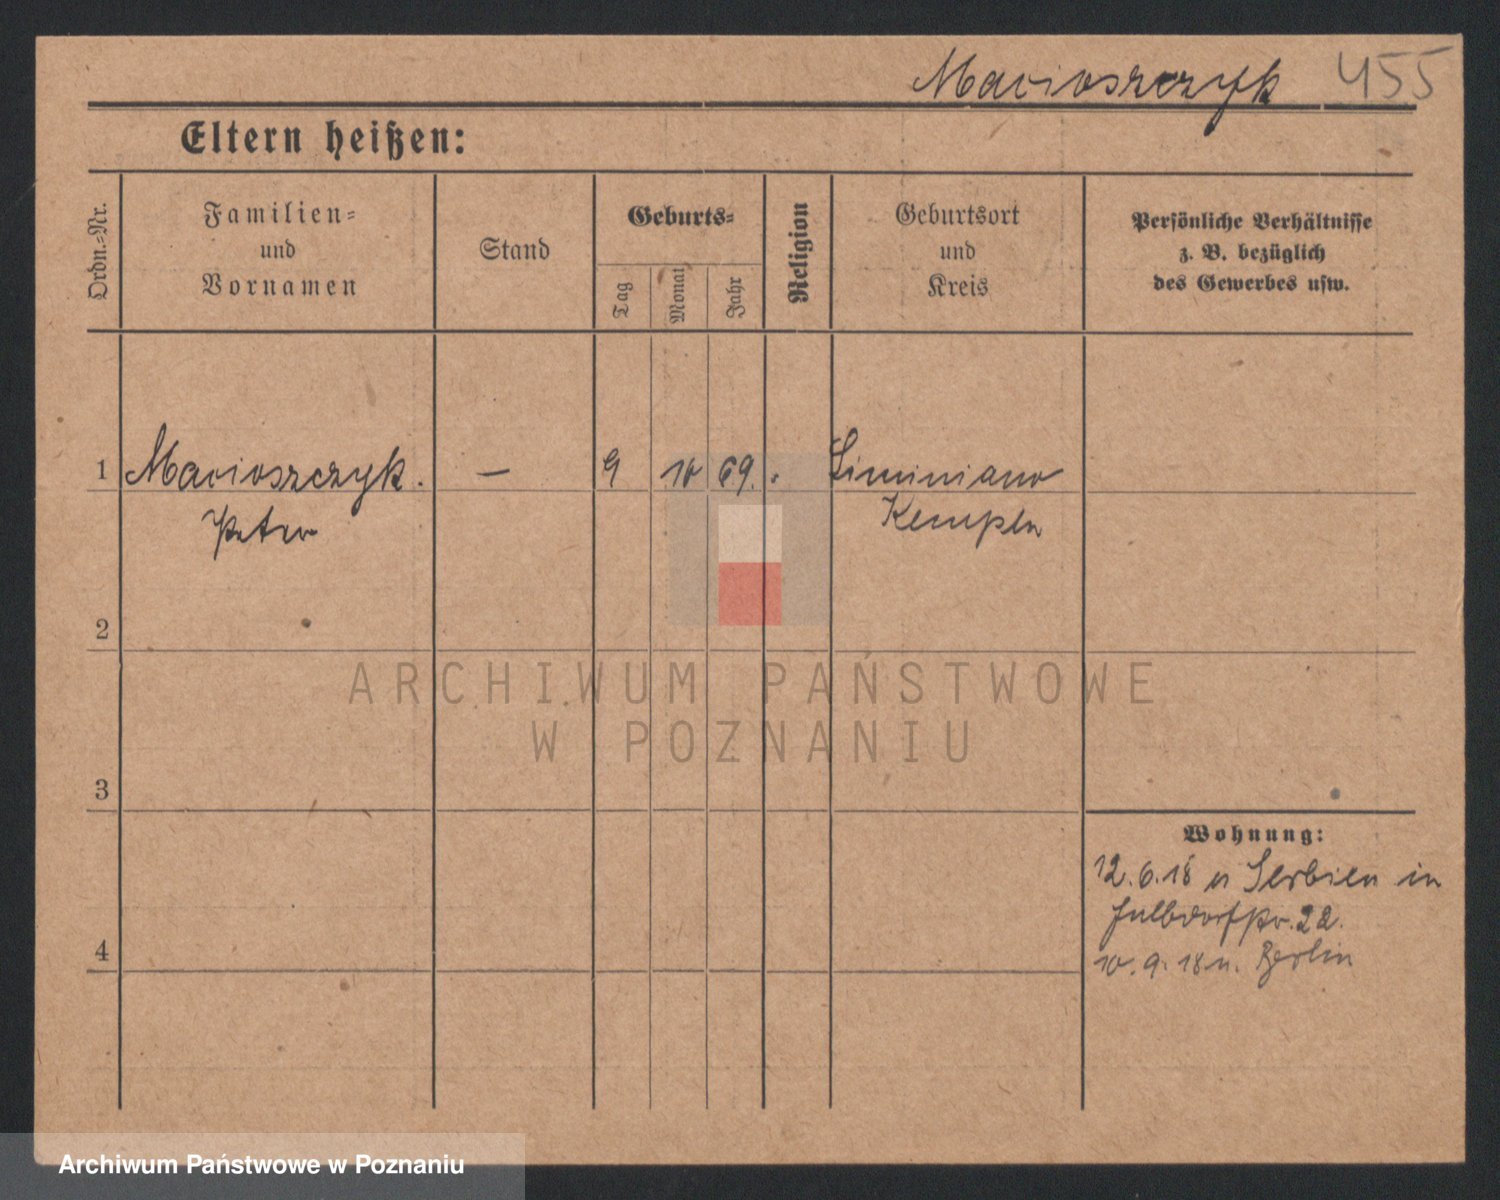 Macioszczyk 455
Eltern heißen:
Ordn.=Nr.
Familien=
und
Vornamen
Stand
Geburts=
Tag
Monat
Jahr
Religion
Geburtsort
und
Kreis
Persönliche Verhältnisse
z. B. bezüglich
des Gewerbes usw.
1 Macioszczyk. — 9 10 69.
Peter
Siminiano
Kempen
2
3
4
Wohnung:
12.6.18 n Serbien in
22.
10.9.18 n. Berlin
ARCHIWUM PAŃSTWOWE
W POZNANIU
Archiwum Państwowe w Poznaniu